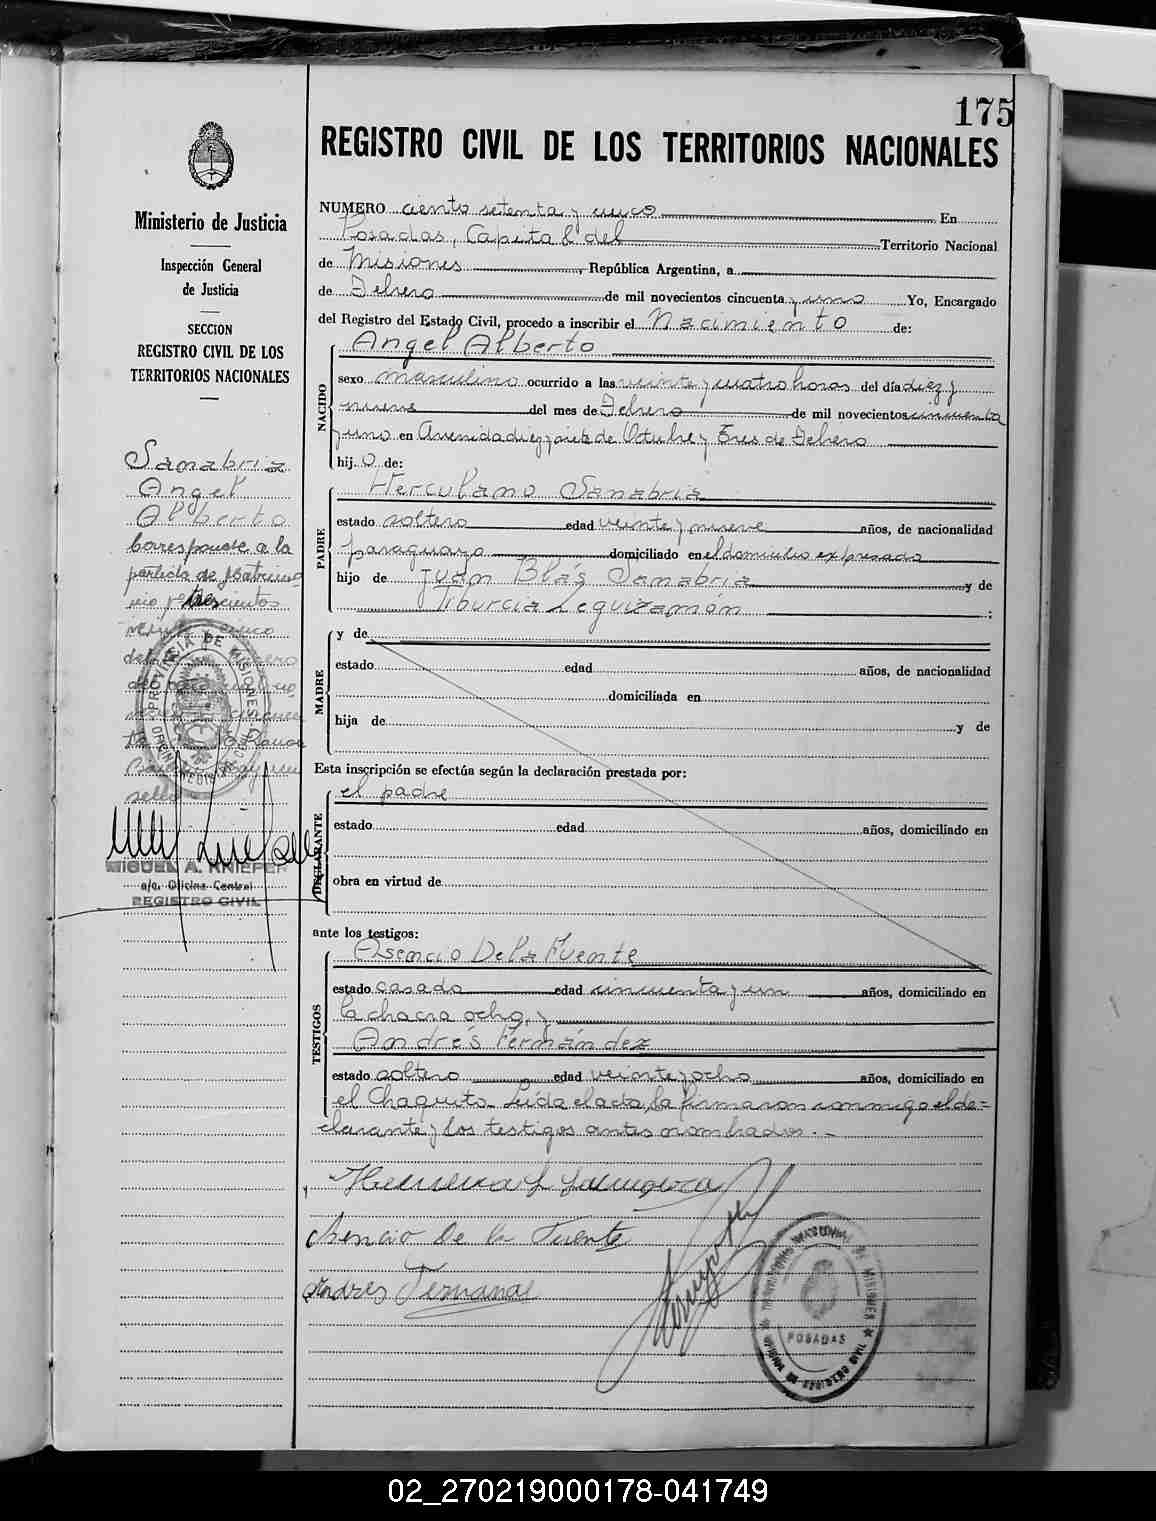 175
REGISTRO CIVIL DE LOS TERRITORIOS NACIONALES
Ministerio de Justicia
Inspección General
de Justicia
SECCION
REGISTRO CIVIL DE LOS
TERRITORIOS NACIONALES
Sanabria
Angel
Alberto
Corresponde a la
partida de
trescientos
PROVINCIA DE MISIONES
sello
MIGUEL A. KNIEPER
a/c. Oficina Central
REGISTRO CIVIL
NUMERO ciento setenta y cinco En
Posadas, Capital del Territorio Nacional
de Misiones, República Argentina, a
de Febrero de mil novecientos cincuenta y uno Yo, Encargado
del Registro del Estado Civil, procedo a inscribir el Nacimiento de:
NACIDO
Angel Alberto
sexo masculino ocurrido a las veinte y cuatro horas del día diez y
nueve del mes de Febrero de mil novecientos cincuenta
y uno en Avenida diez y siete de Octubre y Tres de Febrero
hij.o de:
PADRE
Herculano Sanabria
estado soltero edad veinte y nueve años, de nacionalidad
paraguayo domiciliado en el domicilio expresado
hijo de Juán Blás Sanabria y de
Tiburcia Leguizamón :
MADRE
y de
estado edad años, de nacionalidad
domiciliada en
hija de y de
Esta inscripción se efectúa según la declaración prestada por:
DECLARANTE
el padre
estado edad años, domiciliado en
obra en virtud de
ante los testigos:
TESTIGOS
Asencio De la Fuente
estado casado edad cincuenta y un años, domiciliado en
la chacra ocho, y
Andrés Fernández
estado soltero edad veinte y ocho años, domiciliado en
el Chaquito. Leída el acta, la firmaron conmigo el de-
clarante y los testigos antes nombrados.-
Asencio De la Fuente
Andres Fernandez
POSADAS
02_270219000178-041749